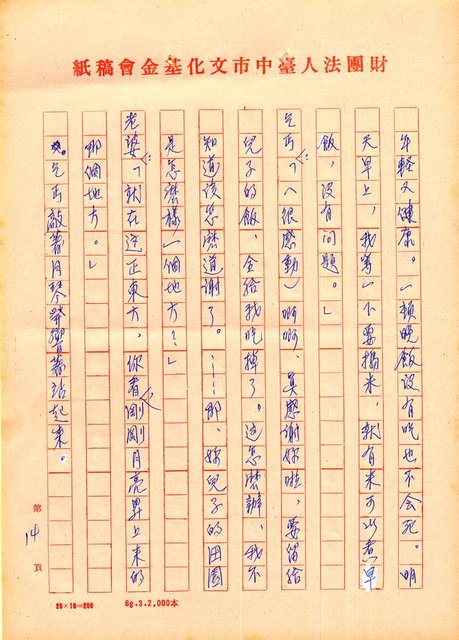 財團法人臺中市文化基金會稿紙
年輕又健康。一頓晚飯沒有吃也不会死。明
天早上，我等一下要搗米，就有米可以煮早
飯，沒有问題。」
乞丐：「（很感動）啊啊，真感谢妳啦，要留給
兒子的飯，全给我吃掉了。這怎麽辦，我不
知道该怎麽道谢了。……那、妳兒子的田園
是怎麽樣一個地方？」
老婆：「就在這正東方，你看，剛剛月亮昇上来的
那個地方。」
乞丐敲著月琴發響著站起来。
第14頁
20×10=200
68.3.2,000本